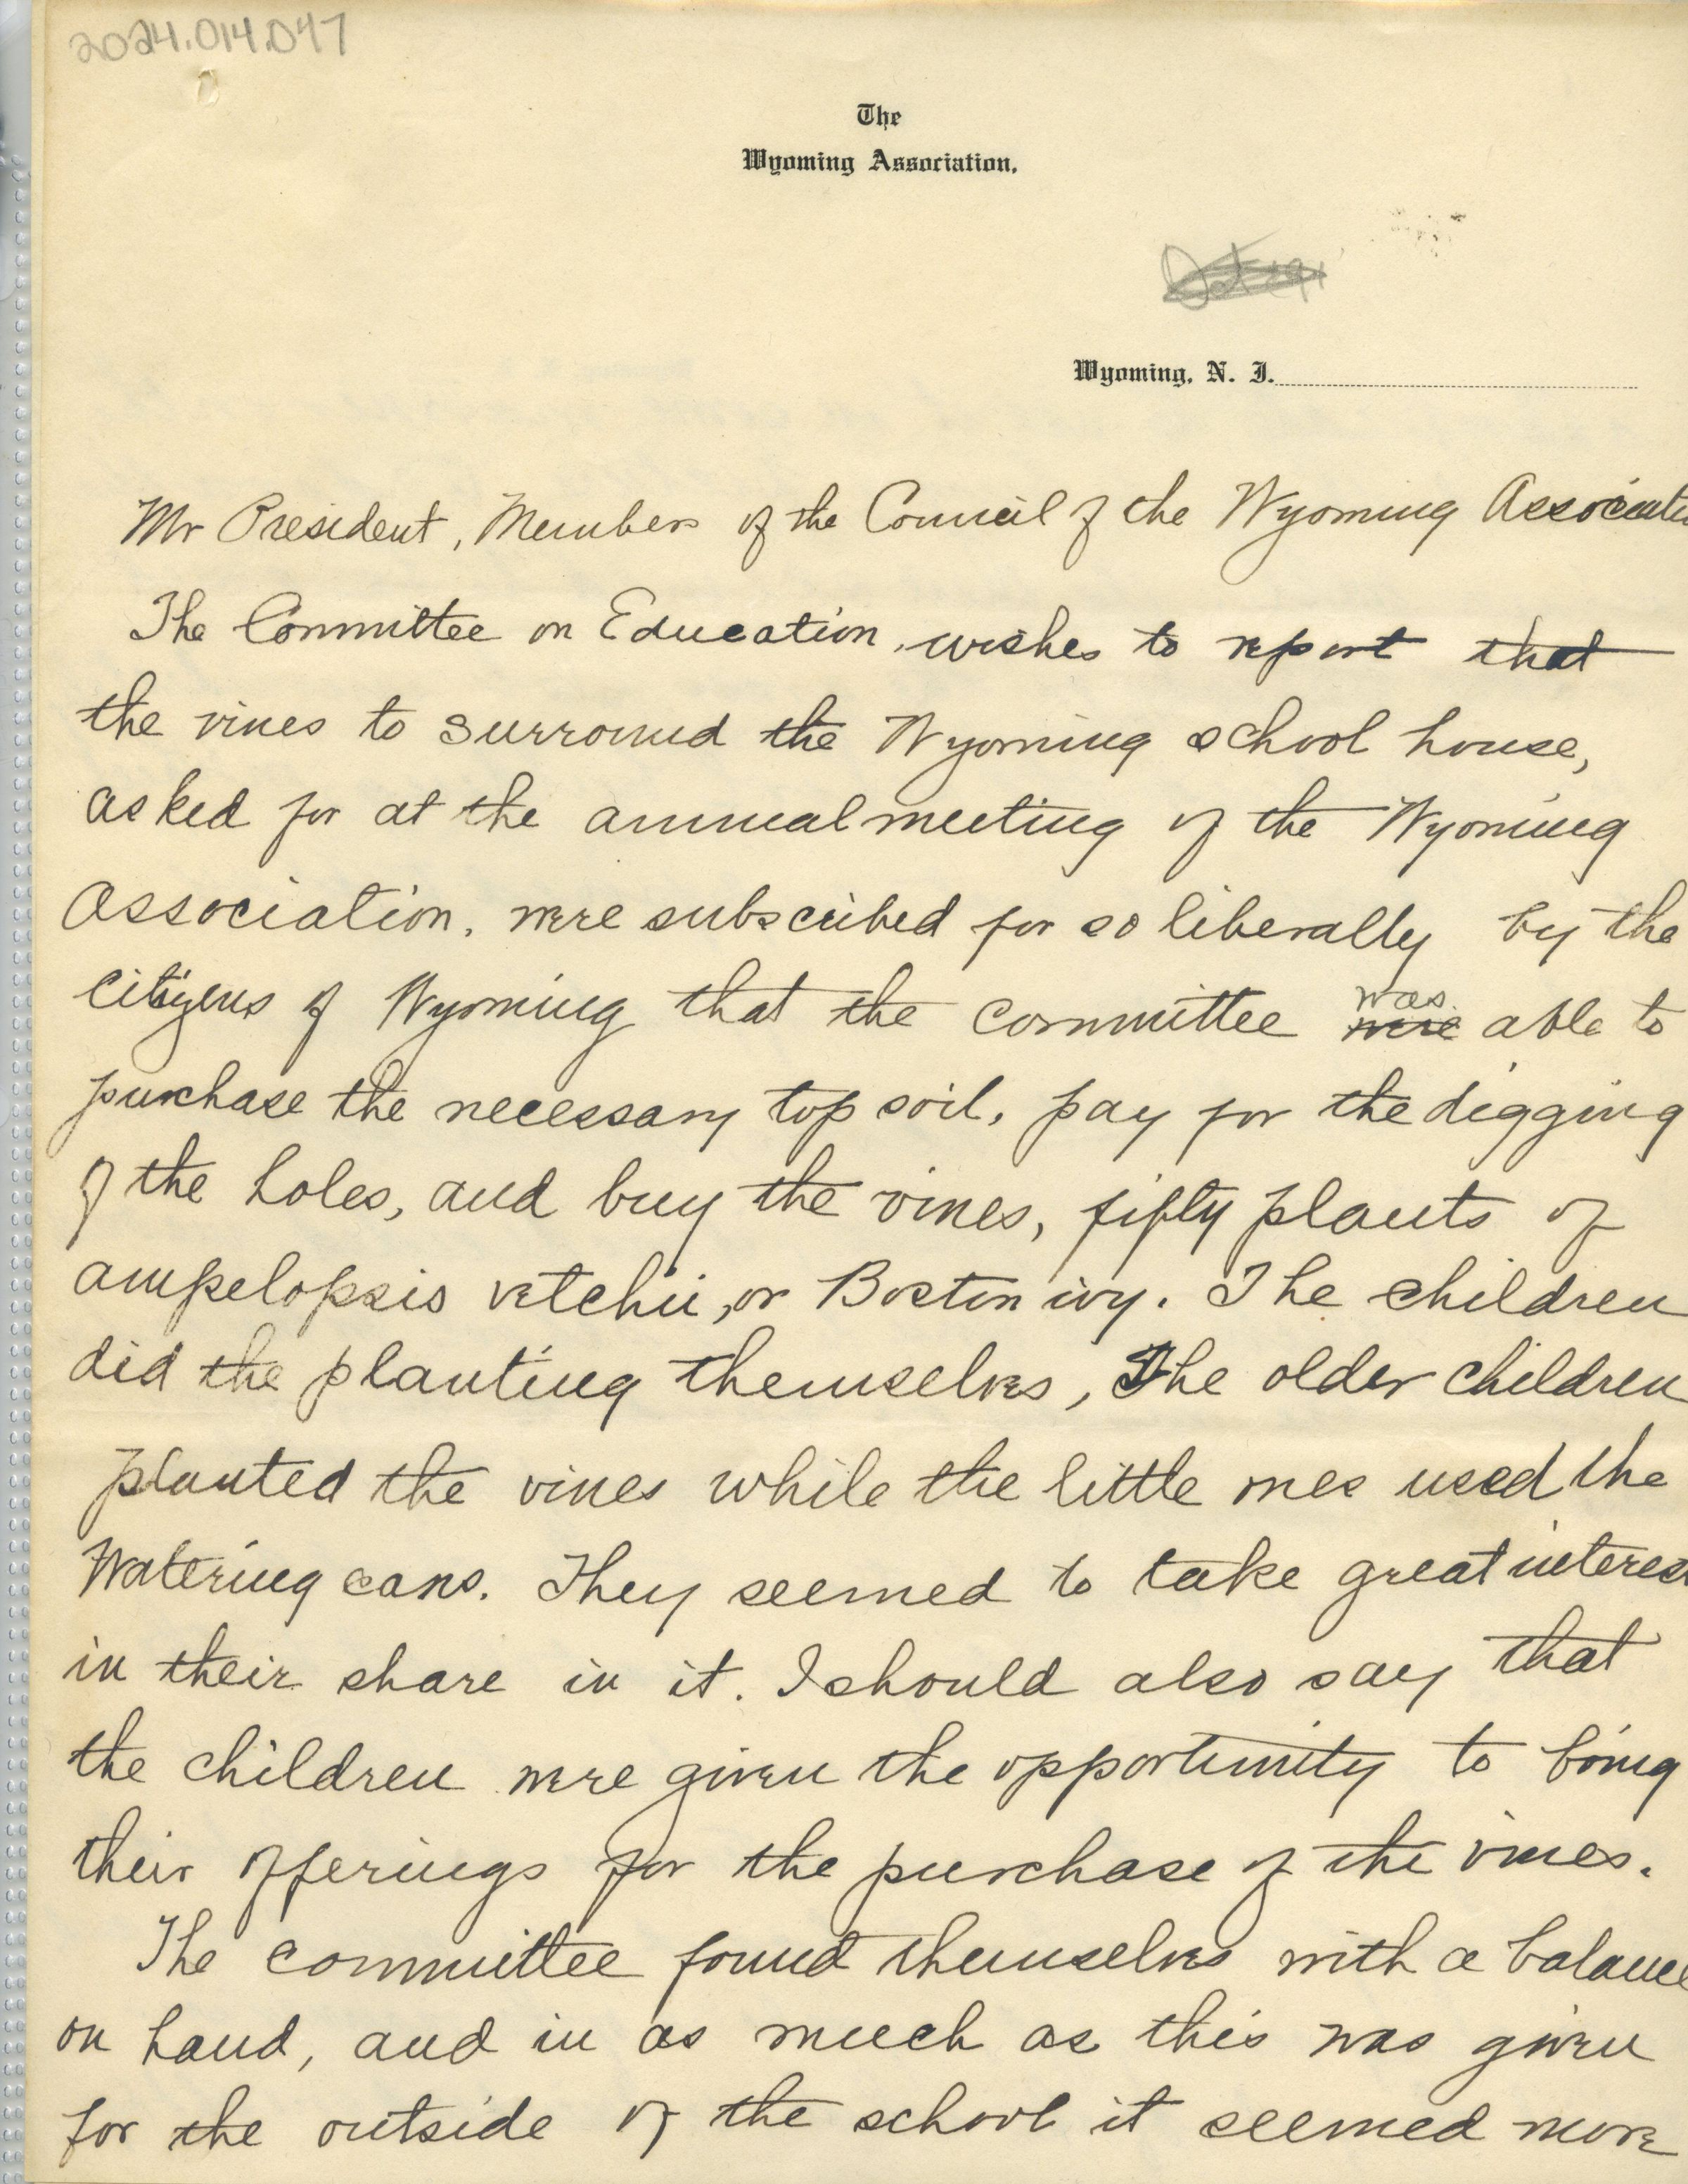 2024.014.047
The
Wyoming Association.
Wyoming, N. J.
Mr President, Members of the Council of the Wyoming Associatio
The Committee on Education, wishes to report that
the vines to surround the Wyoming school house,
asked for at the annual meeting of the Wyoming
Association, were subscribed for so liberally by the
citizens of Wyoming that the committee was were able to
purchase the necessary top soil, pay for the digging
of the holes, and buy the vines, fifty plants of
ampelopsis vetchii, or Boston ivy. The children
did the planting themselves, The older children
planted the vines while the little ones used the
Watering cans. They seemed to take great interes
in their share in it. I should also say that
the children were given the opportunity to bring
their offerings for the purchase of the vines.
The committee found themselves with a balance
on hand, and in as much as this was given
for the outside of the school it seemed more